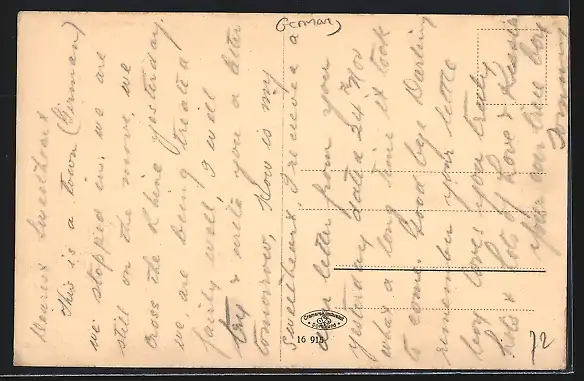 (German)
Dearest Sweetheart
This is a town (German)
we stopped in. we are
still on the move, we
cross the Rhine yesterday.
we, are being treated
fairly well, I will
try & write you a letter
tomorrow, How is my
Sweetheart, I received a
letter from you
yesterday dated 24 Nov
what a long time it took
to come. Good bye Darling
remember your little
boy loves you truly
lots & lots of Love & Kisses
your own true boy
Tommy
Cramers Kunstanstalt
Dortmund
16 918
72